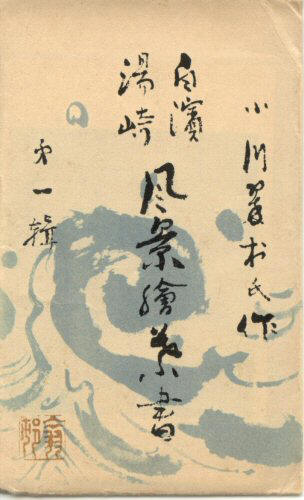 小川翠村氏作
白濱
湯崎
風景繪葉書
第一輯